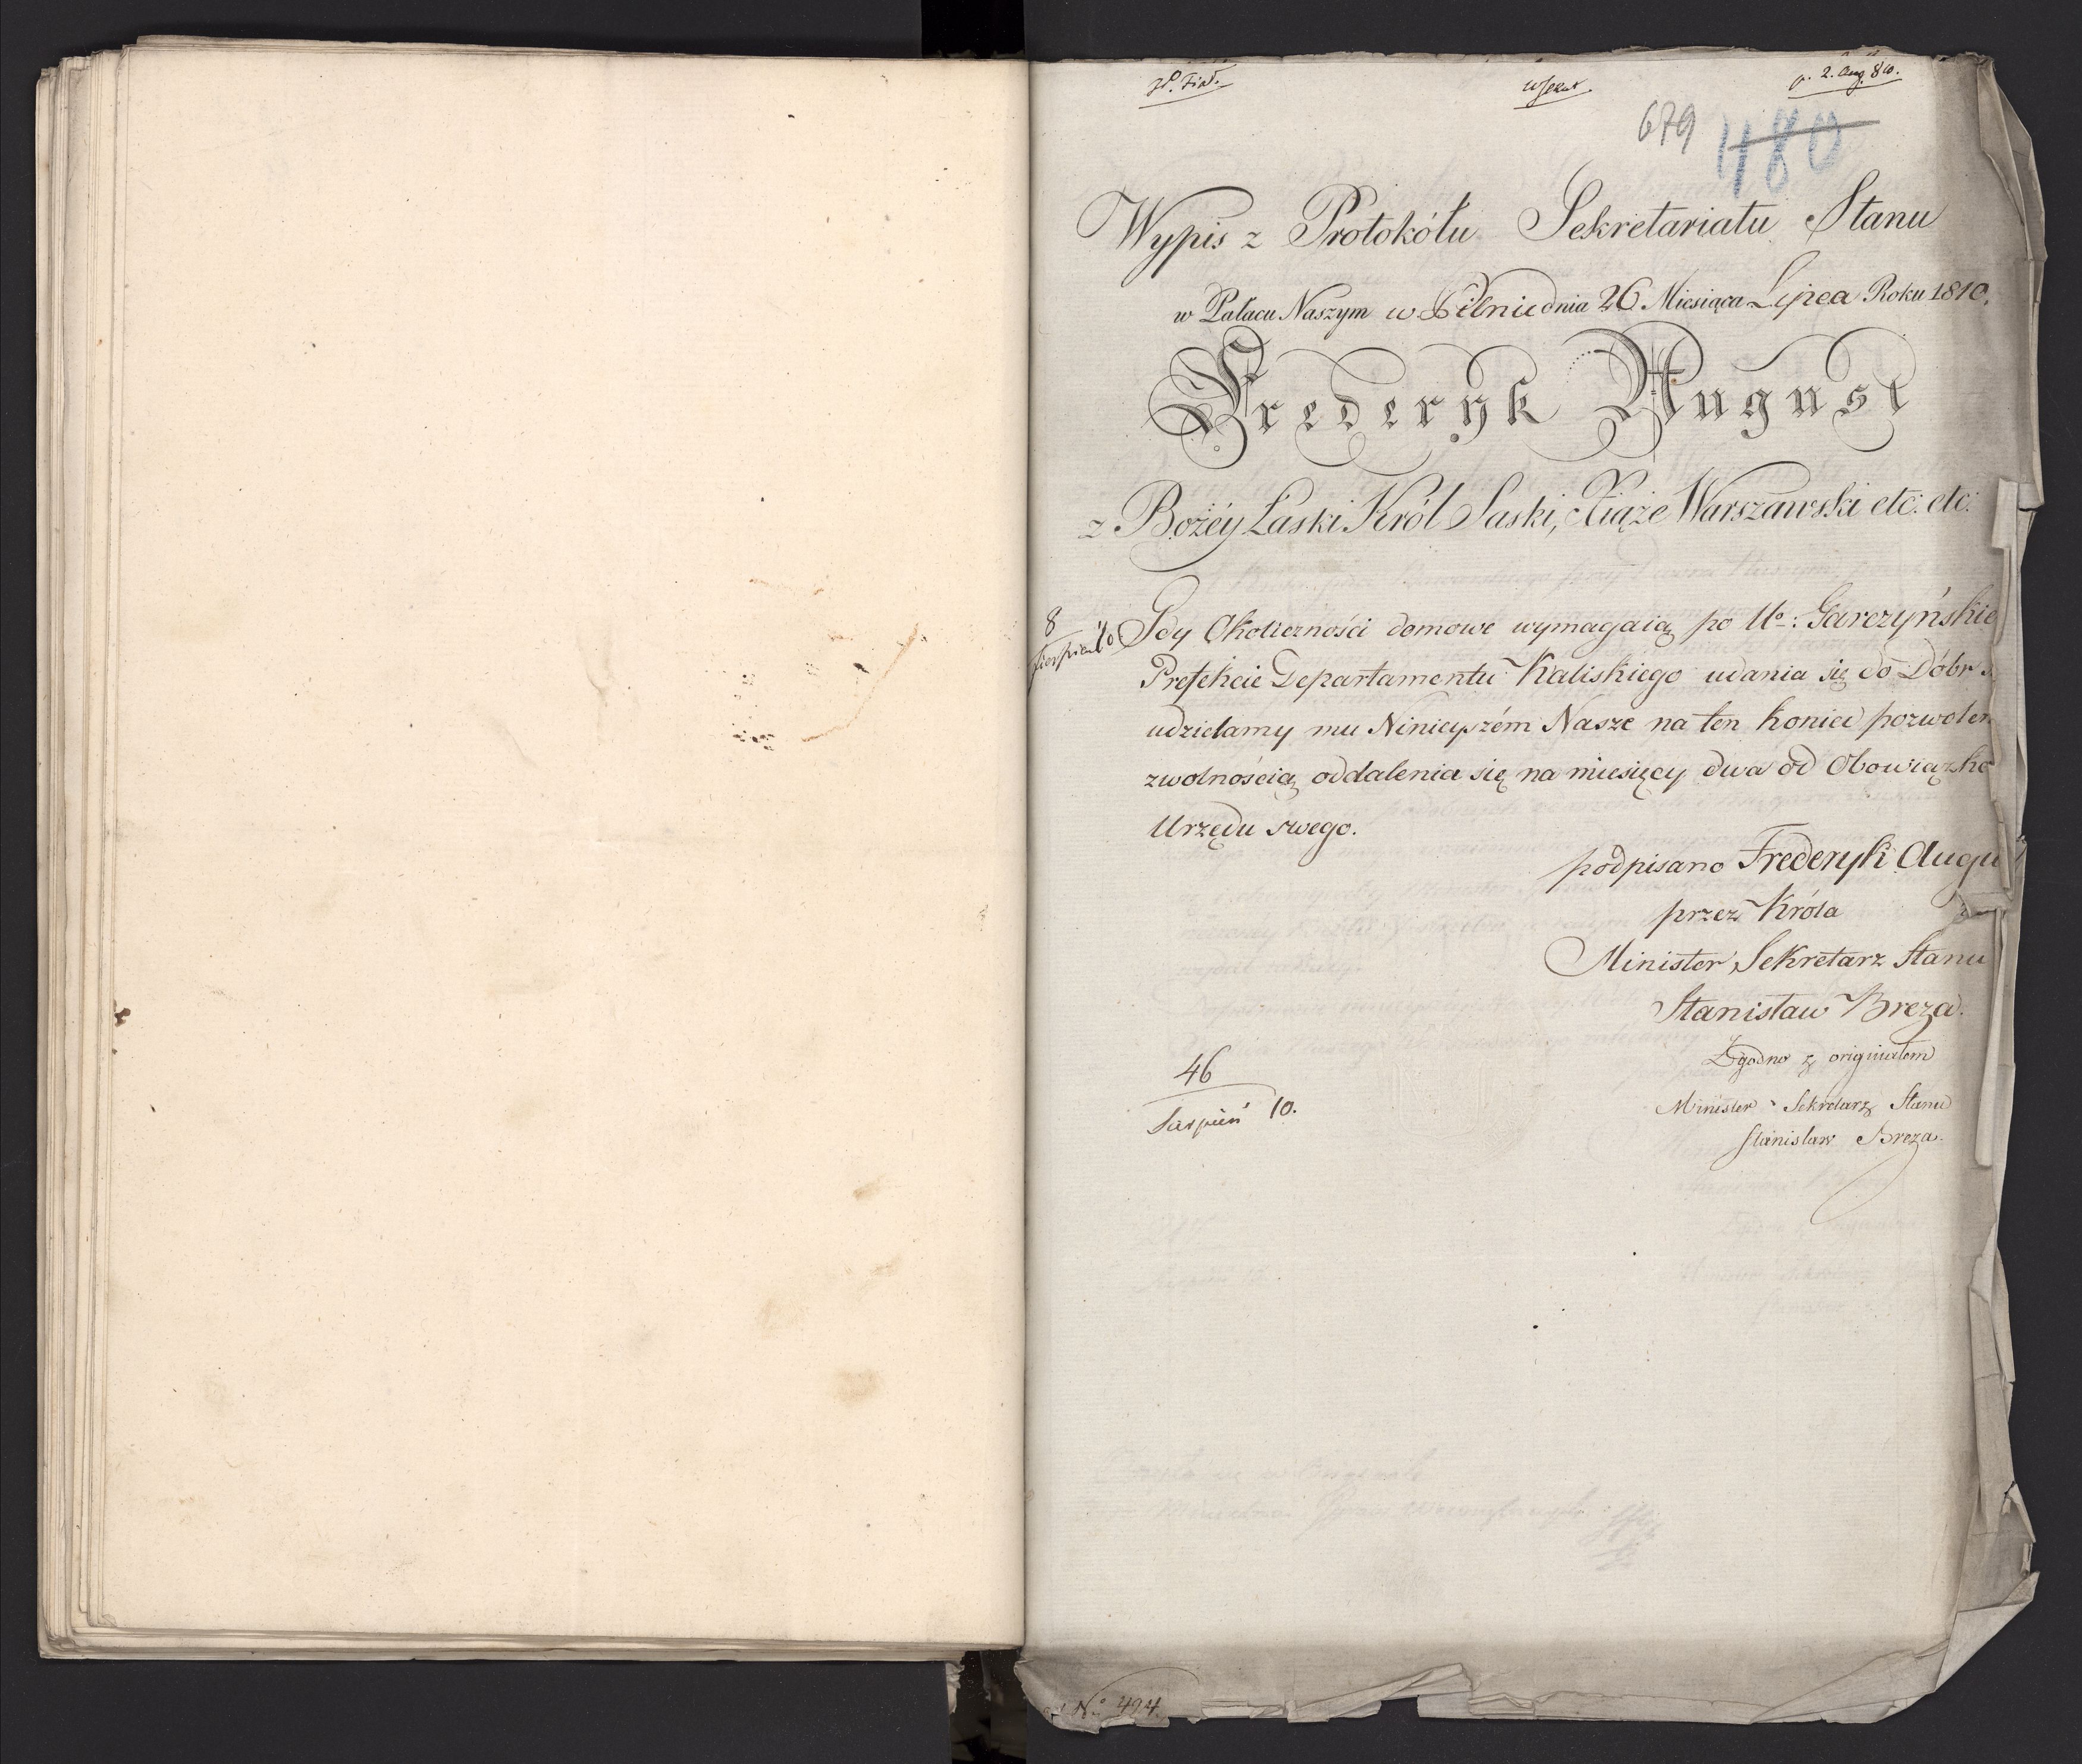 2. Aug 810.
679 480
Wypis z Protokółu Sekretariatu Stanu
w Pałacu Naszym w Pilnic dnia 26 Miesiąca Lipca Roku 1810.
Frederyk August
z Bożéy Łaski Król Saski, Xiąże Warszawski etc: etc:
8
Sierpień 10
Gdy Okoliczności domowe wymagaią po Uo: Garczyńskie
Prefekcie Departamentu Kaliskiego udania się do Dóbr
udzielamy mu Ninieyszém Nasze na ten koniec pozwolen
zwolnością oddalenia się na miesięcy dwa od Obowiązkó
Urzędu swego.
podpisano Frederyk Augu
przez Króla
Minister Sekretarz Stanu
Stanisław Breza.
Zgodno z originałem
Minister Sekretarz Stanu
Stanisław Breza.
46
Sierpień 10.
No 494.